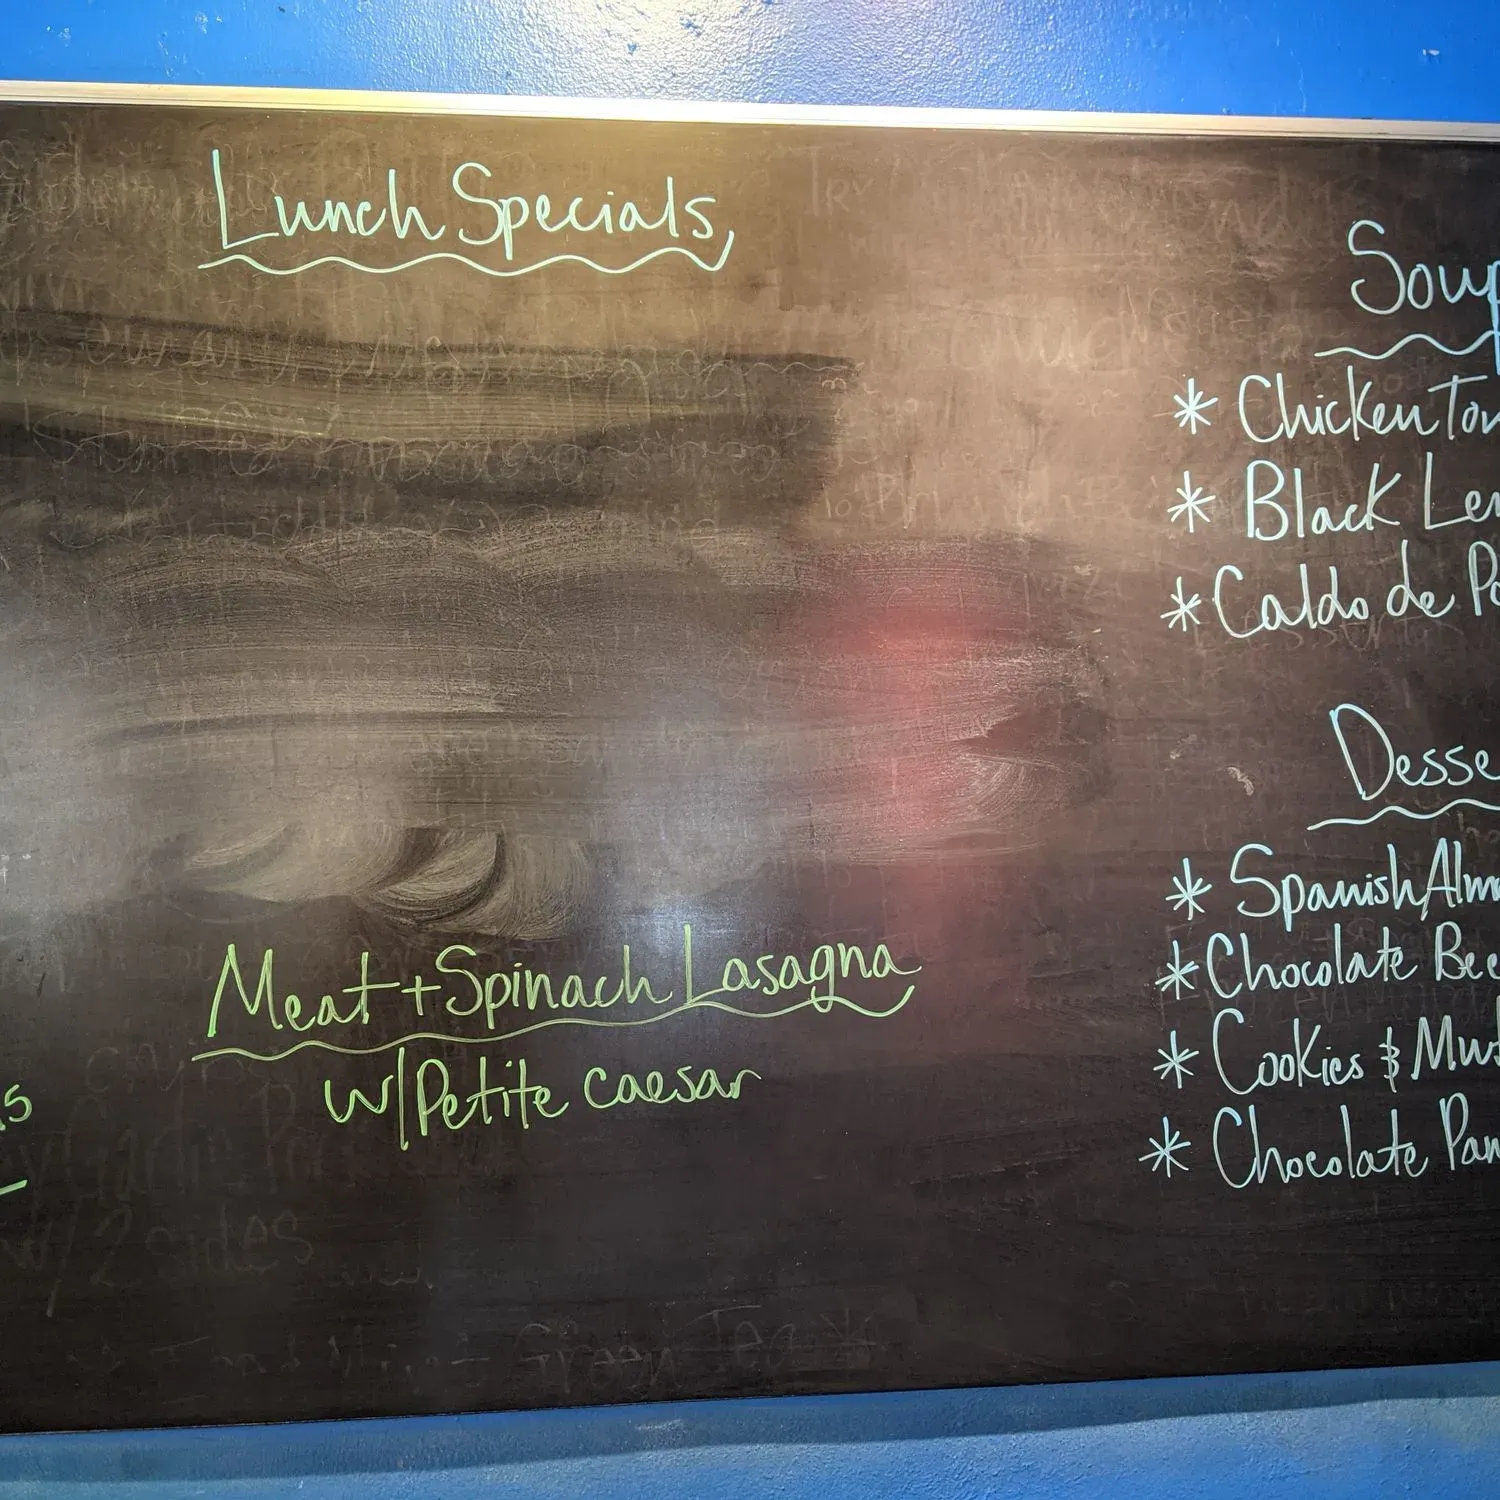 Lunch Specials
Meat + Spinach Lasagna
w/ Petite caesar
Soup
* Chicken
* Black
* Caldo de
Desse
* Spanish
* Chocolate
* Cookies &
* Chocolate